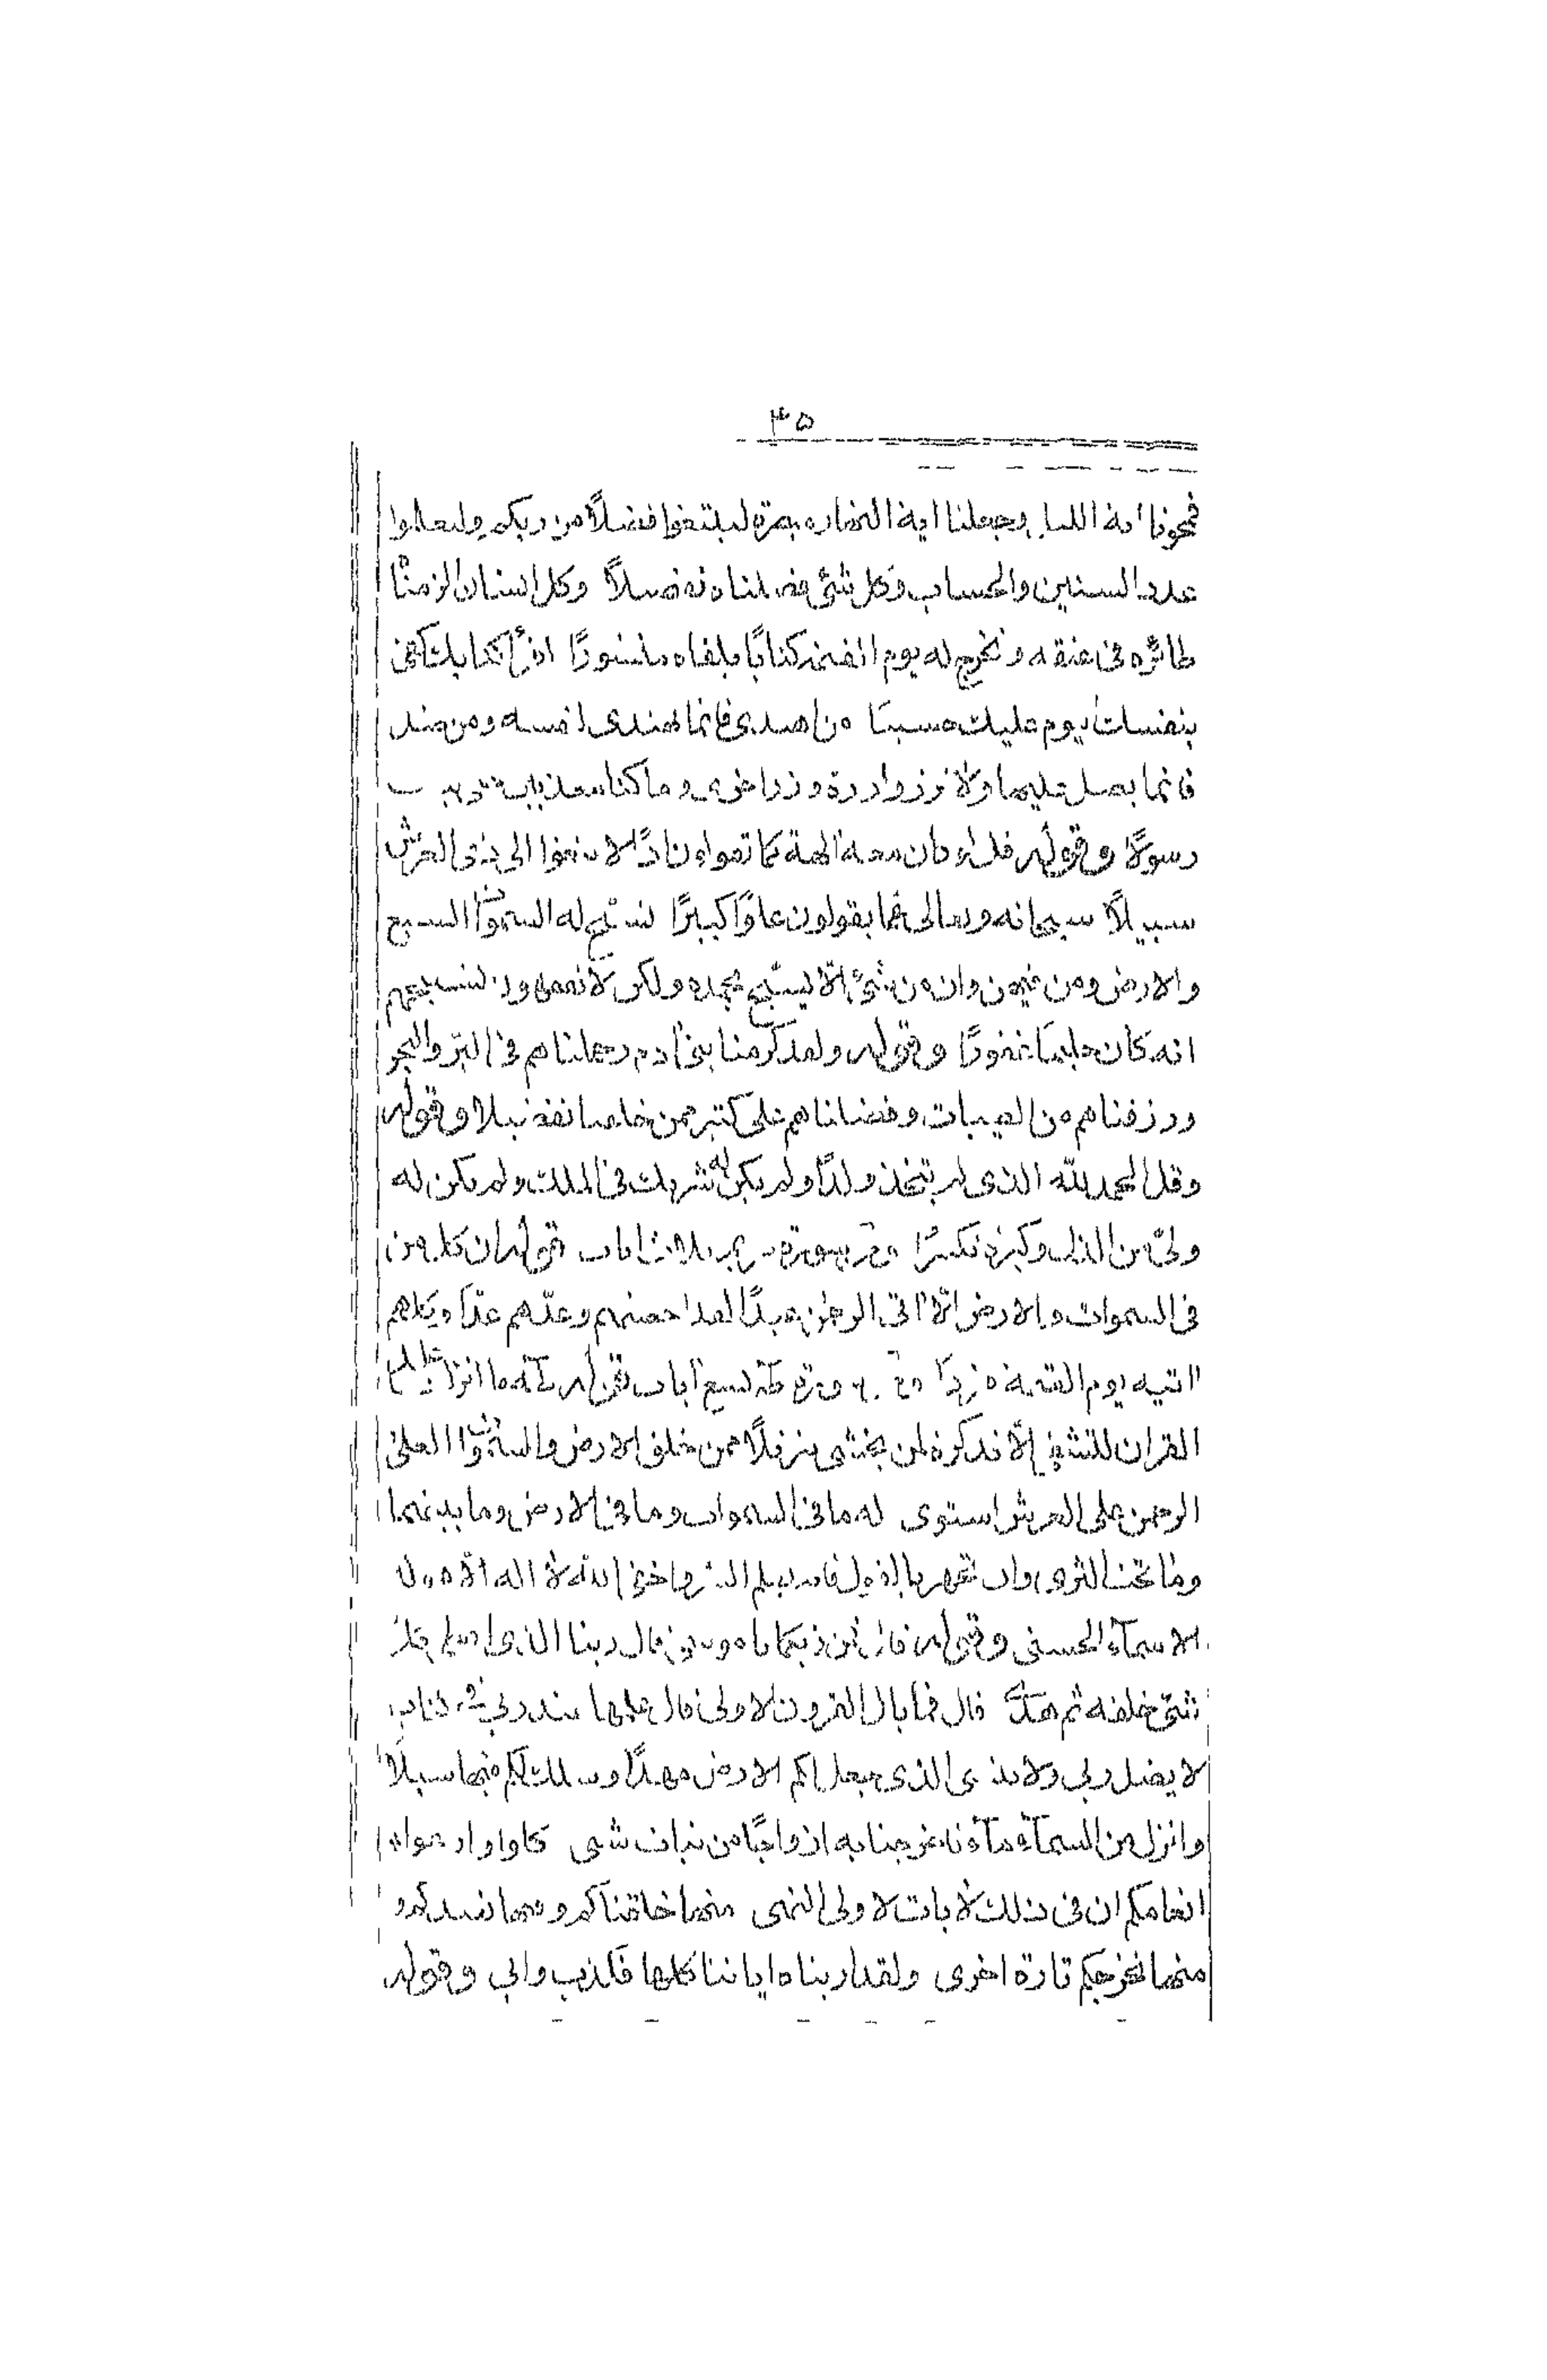 ٣٥
فمحونا اية الليل وجعلنا اية النهار مبصرة لتبتغوا فضلاً من ربكم ولتعلموا
عدد السنين والحساب وكل شئ فصلناه تفصيلاً وكل انسان الزمناه
طائره فى عنقه ونخرج له يوم القيمة كتابًا يلقاه منشورًا اقرأ كتابك كفى
بنفسك اليوم عليك حسيبًا من اهتدى فانما يهتدى لنفسه ومن ضل
فانما يضل عليها ولا تزر وازرة وزر اخرى وما كنا معذبين حتى نبعث
رسولًا وقوله قل لو كان معه الهة كما تقولون اذًا لابتغوا الى ذى العرش
سبيلًا سبحانه وتعالى عما يقولون علوًا كبيرًا تسبّح له السموات السبع
والارض ومن فيهن وان من شئ الّا يسبّح بحمده ولكن لا تفقهون تسبيحهم
انه كان حليمًا غفورًا وقوله ولقد كرّمنا بنى ادم وحملناهم فى البرّ والبحر
ورزقناهم من الطيبات وفضلناهم على كثير ممن خلقنا تفضيلا وقوله
وقل الحمد لله الذى لم يتخذ ولدًا ولم يكن له شريك فى الملك ولم يكن له
ولىّ من الذل وكبّره تكبيرًا ومن سورة مريم ثلاث ايات قوله ان كل من
فى السموات والارض الّا اتى الرحمن عبدًا لقد احصيهم وعدّهم عدّا وكلهم
اتيه يوم القيمة فردًا ومن سورة طه تسع آيات قوله طه ما انزلنا عليك
القران لتشقى إلّا تذكرة لمن يخشى تنزيلًا ممن خلق الارض والسموات العلى
الرحمن على العرش استوى له ما فى السموات وما فى الارض وما بينهما
وما تحت الثرى وان تجهر بالقول فانه يعلم السر واخفى الله لا اله الّا هو له
الاسمآء الحسنى وقوله قال فمن ربكما يا موسى قال ربنا الذى اعطى كل
شئ خلقه ثم هدى قال فما بال القرون الاولى قال علمها عند ربى فى كتاب
لا يضل ربى ولا ينسى الذى جعل لكم الارض مهدًا وسلك لكم فيها سبلًا
وانزل من السمآء مآء فاخرجنا به ازواجًا من نبات شتى كلوا وارعوا
انعامكم ان فى ذلك لايات لاولى النهى منها خلقناكم وفيها نعيدكم و
منها نخرجكم تارة اخرى ولقد اريناه اياتنا كلها فكذب وابى وقوله